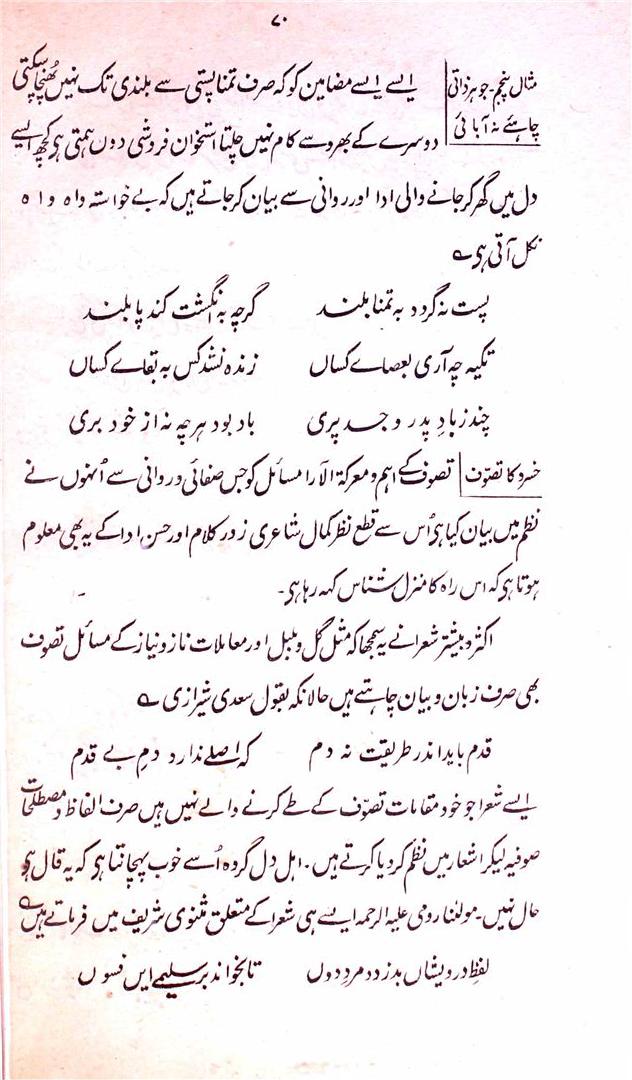 ۷۰
مثال پنجم۔ جوہر ذاتی
چاہئے نہ آبائی
ایسے ایسے مضامین کو کہ صرف تمنا پستی سے بلندی تک نہیں پہنچا سکتی
دوسرے کے بھروسے کام نہیں چلتا استخوان فروشی دوں ہمتی ہی کچھ ایسے
دل میں گھر کر جانے والی ادا اور روانی سے بیان کر جاتے ہیں کہ بے خواستہ واہ واہ
نکل آتی ہی ؎
پست نہ گردد بہ تمنا بلند گرچہ بہ انگشت کند پا بلند
تکیہ چہ آری بعصاے کساں زندہ نشد کس بہ بقاے کساں
چند زباد پدر و جد پری باد بود ہرچہ نہ از خود بری
خسرو کا تصوّف
تصوف کے اہم و معرکۃ الآرا مسائل کو جس صفائی و روانی سے اُنہوں نے
نظم میں بیان کیا ہی اُس سے قطع نظر کمال شاعری زور کلام اور حسن ادا کے یہ بھی معلوم
ہوتا ہی کہ اس راہ کا منزل شناس کہہ رہا ہی۔
اکثر و بیشتر شعرا نے یہ سمجھا کہ مثل گل و بلبل اور معاملات ناز و نیاز کے مسائل تصوف
بھی صرف زبان و بیان چاہتے ہیں حالانکہ بقول سعدی شیرازی ؎
قدم باید اندر طریقت نہ دم کہ اصلے ندارد دمِ بے قدم
ایسے شعرا جو خود مقامات تصوّف کے طے کرنے والے نہیں ہیں صرف الفاظ و مصطلحات
صوفیہ لیکر اشعار میں نظم کر دیا کرتے ہیں۔ اہل دل گروہ اُسے خوب پہچانتا ہی کہ یہ قال ہی
حال نہیں۔ مولٰنا رومی علیہ الرحمہ ایسے ہی شعرا کے متعلق مثنوی شریف میں فرماتے ہیں ؎
لفظِ درویشاں بدزدد مردِ دوں تا بخواند بر سلیمے ایں فسوں